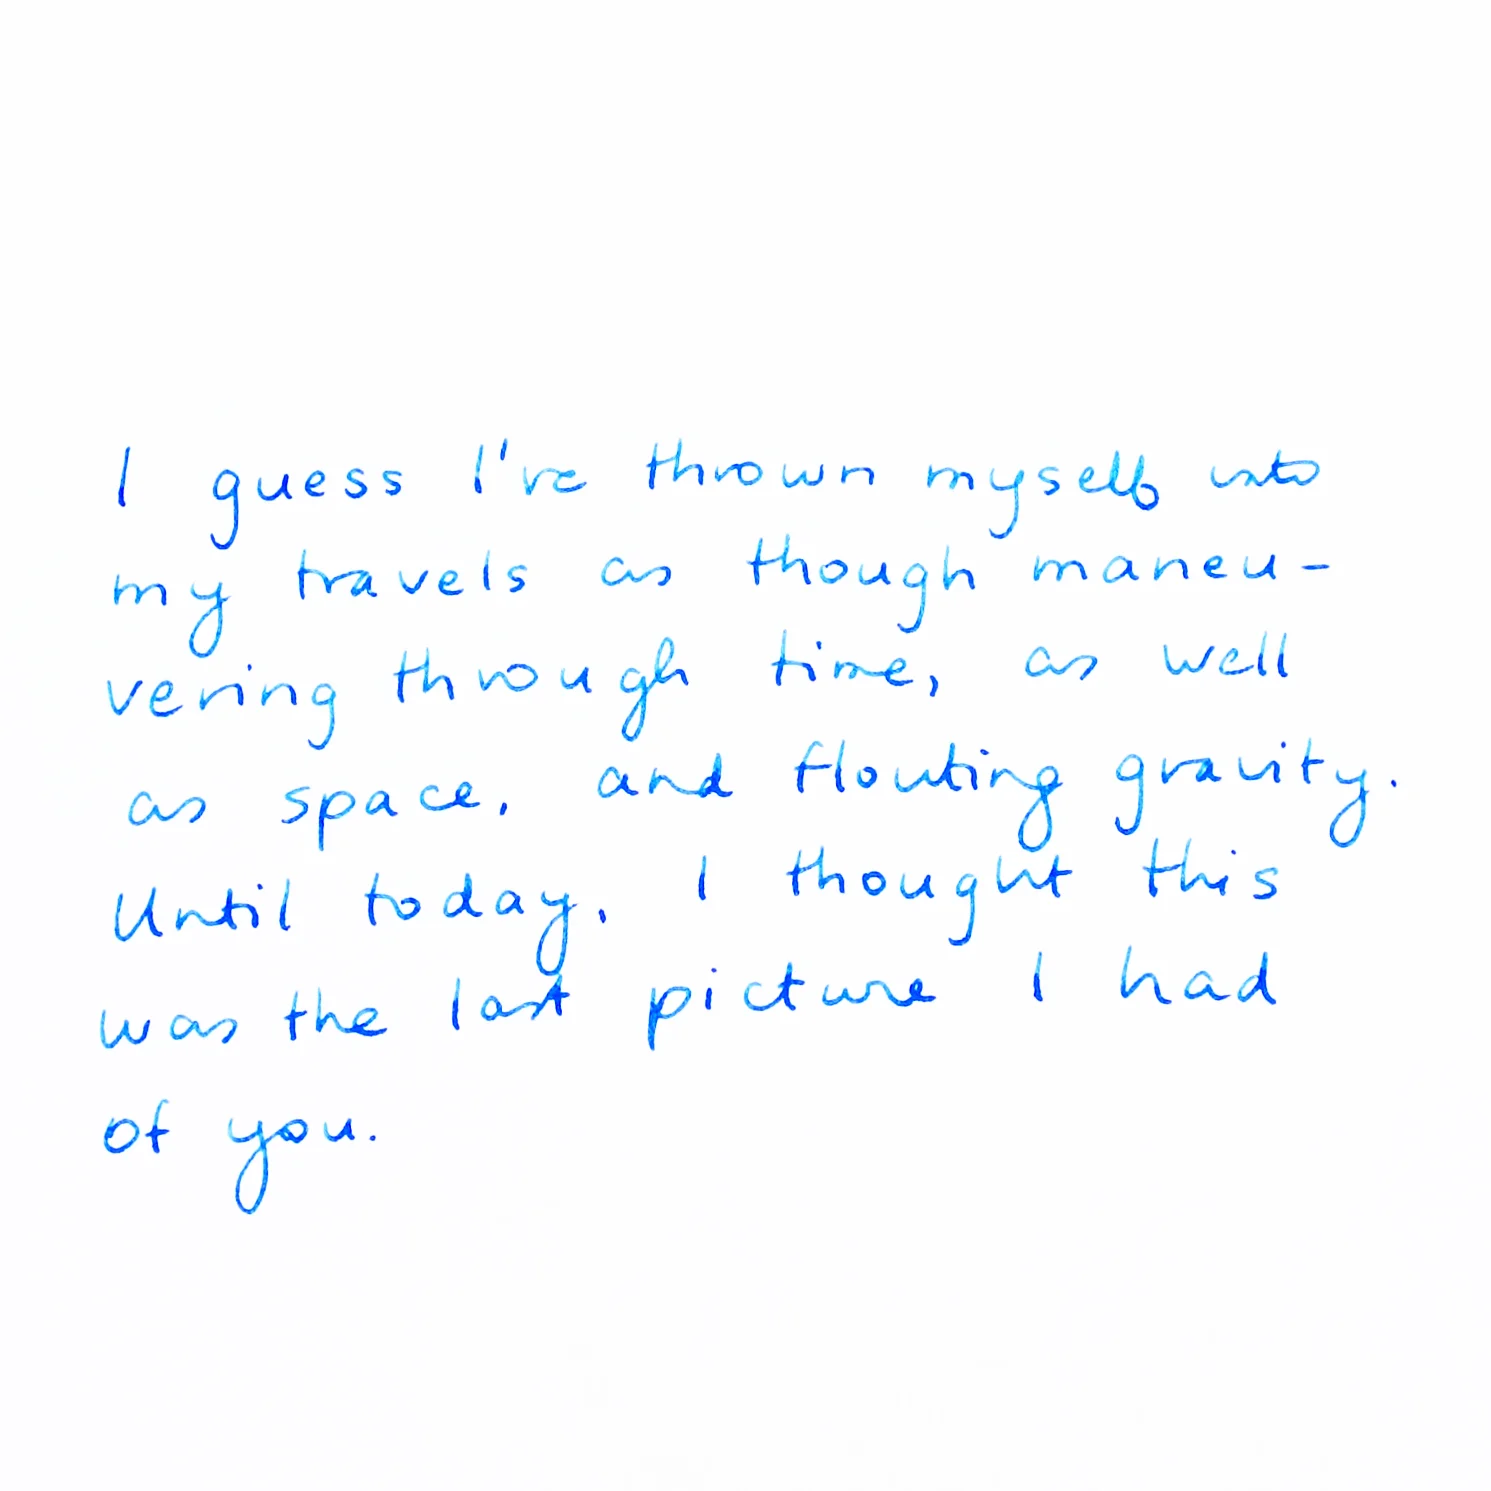 I guess I've thrown myself into
my travels as though maneu-
vering through time, as well
as space, and flouting gravity.
Until today, I thought this
was the last picture I had
of you.